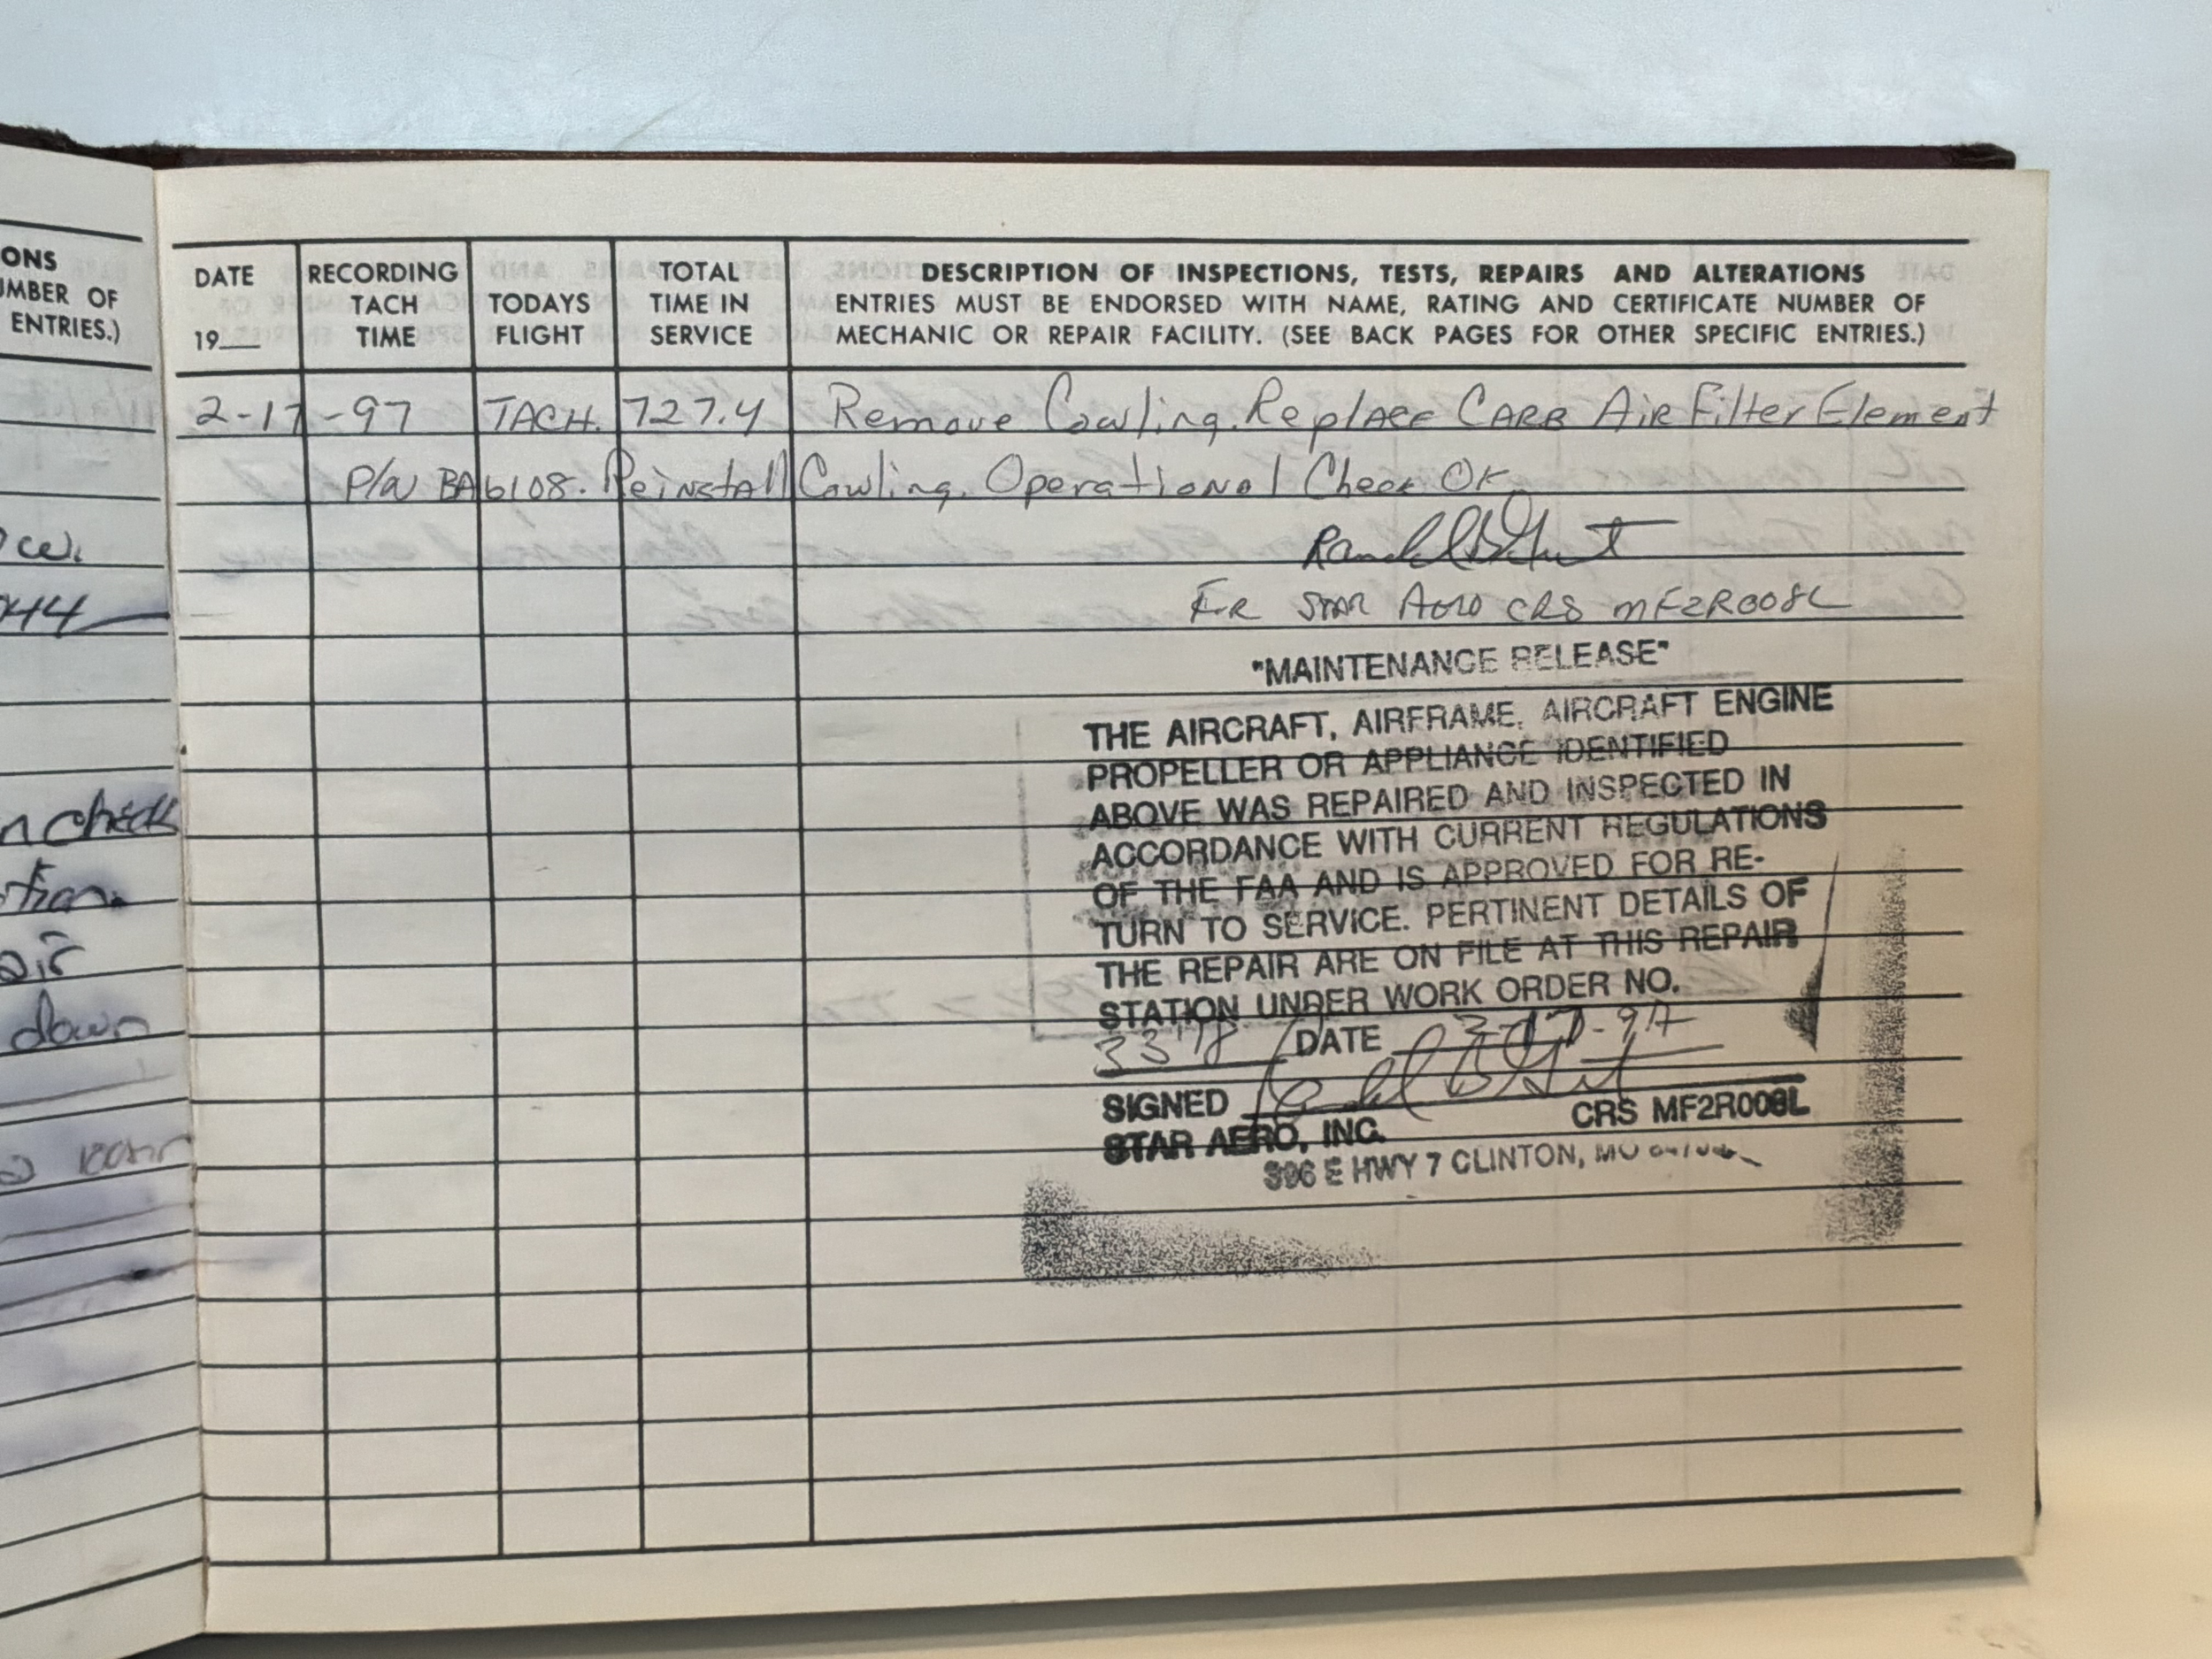 ONS
UMBER OF
ENTRIES.)
ce.
44
n check
tion.
air
down
DATE
19__
RECORDING
TACH
TIME
TODAYS
FLIGHT
TOTAL
TIME IN
SERVICE
DESCRIPTION OF INSPECTIONS, TESTS, REPAIRS AND ALTERATIONS
ENTRIES MUST BE ENDORSED WITH NAME, RATING AND CERTIFICATE NUMBER OF
MECHANIC OR REPAIR FACILITY. (SEE BACK PAGES FOR OTHER SPECIFIC ENTRIES.)
2-17-97 TACH. 727.4 Remove Cowling. Replace CARB Air Filter Element
P/N BA6108. Reinstall Cowling. Operational Check OK
For STAR Aero CRS MF2R008L
"MAINTENANCE RELEASE"
THE AIRCRAFT, AIRFRAME, AIRCRAFT ENGINE
PROPELLER OR APPLIANCE IDENTIFIED
ABOVE WAS REPAIRED AND INSPECTED IN
ACCORDANCE WITH CURRENT REGULATIONS
OF THE FAA AND IS APPROVED FOR RE-
TURN TO SERVICE. PERTINENT DETAILS OF
THE REPAIR ARE ON FILE AT THIS REPAIR
STATION UNDER WORK ORDER NO.
DATE
SIGNED
STAR AERO, INC. CRS MF2R008L
396 E HWY 7 CLINTON, MO